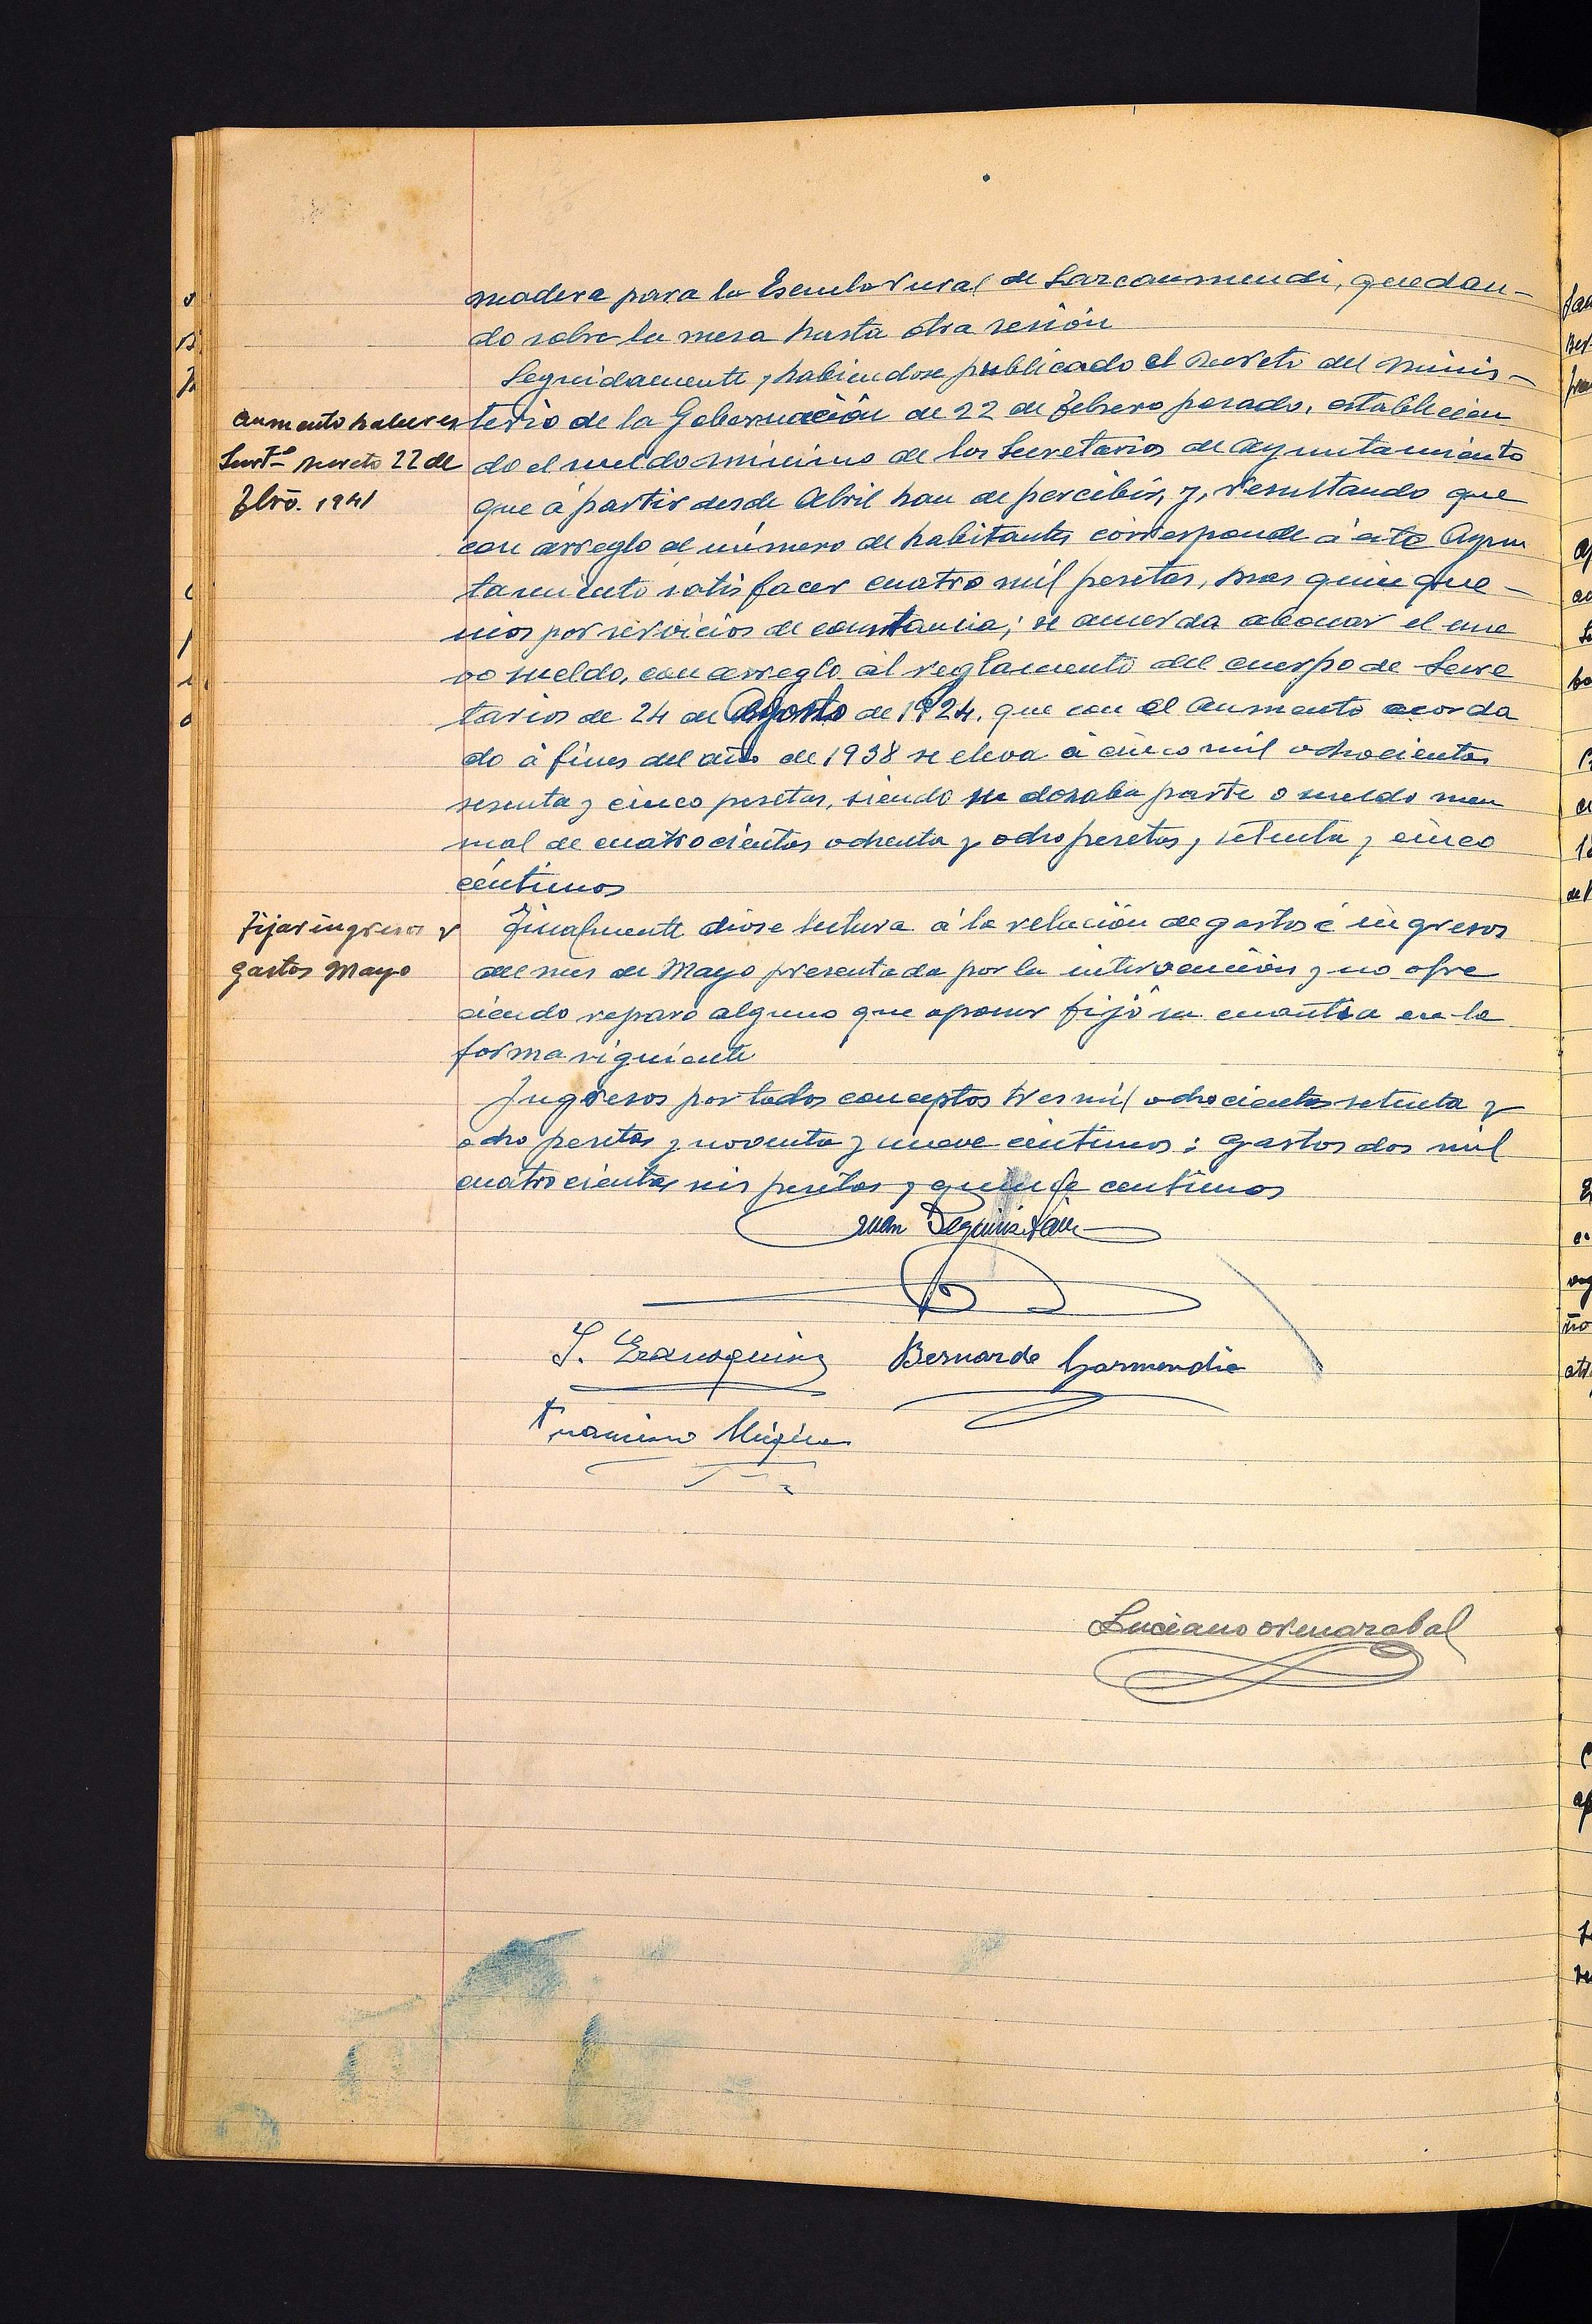 madera para la Escuela rural de Larcaumendi, quedan-
do sobre la mesa hasta otra sesión
Seguidamente, habiendose publicado el Decreto del Minis-
Aumento haberes
Sect.º Decreto 22 de
Fbro. 1941
terio de la Gobernación de 22 de febrero pasado, establecien
do el sueldo mínimo de los Secretarios de Ayuntamiento
que á partir desde Abril han de percibir, y, resultando que
con arreglo al número de habitantes corresponde á este Ayun
tamiento satisfacer cuatro mil pesetas, mas quinque-
nios por servicios de constancia; se acuerda abonar el nue
vo sueldo, con arreglo al reglamento del cuerpo de Secre
tarios de 24 de Agosto de 1924, que con el aumento acorda
do á fines del año de 1938 se eleva á cinco mil ochocientas
sesenta y cinco pesetas, siendo su dozaba parte o sueldo men
sual de cuatrocientas ochenta y ocho pesetas, setenta y cinco
céntimos
Fijar ingresos y
gastos Mayo
Finalmente diose lectura á la relación de gastos é ingresos
del mes de Mayo presentada por la intervención y no ofre
ciendo reparo alguno que oponer fijó su cuantia en la
forma siguiente
Ingresos por todos conceptos tres mil ochocientas setenta y
ocho pesetas y noventa y nueve céntimos: gastos dos mil
cuatrocientas seis pesetas y quince centimos
Juan Beguiristain
Bernardo Garmendia
Francisco Múgica
Luciano Ormazabal